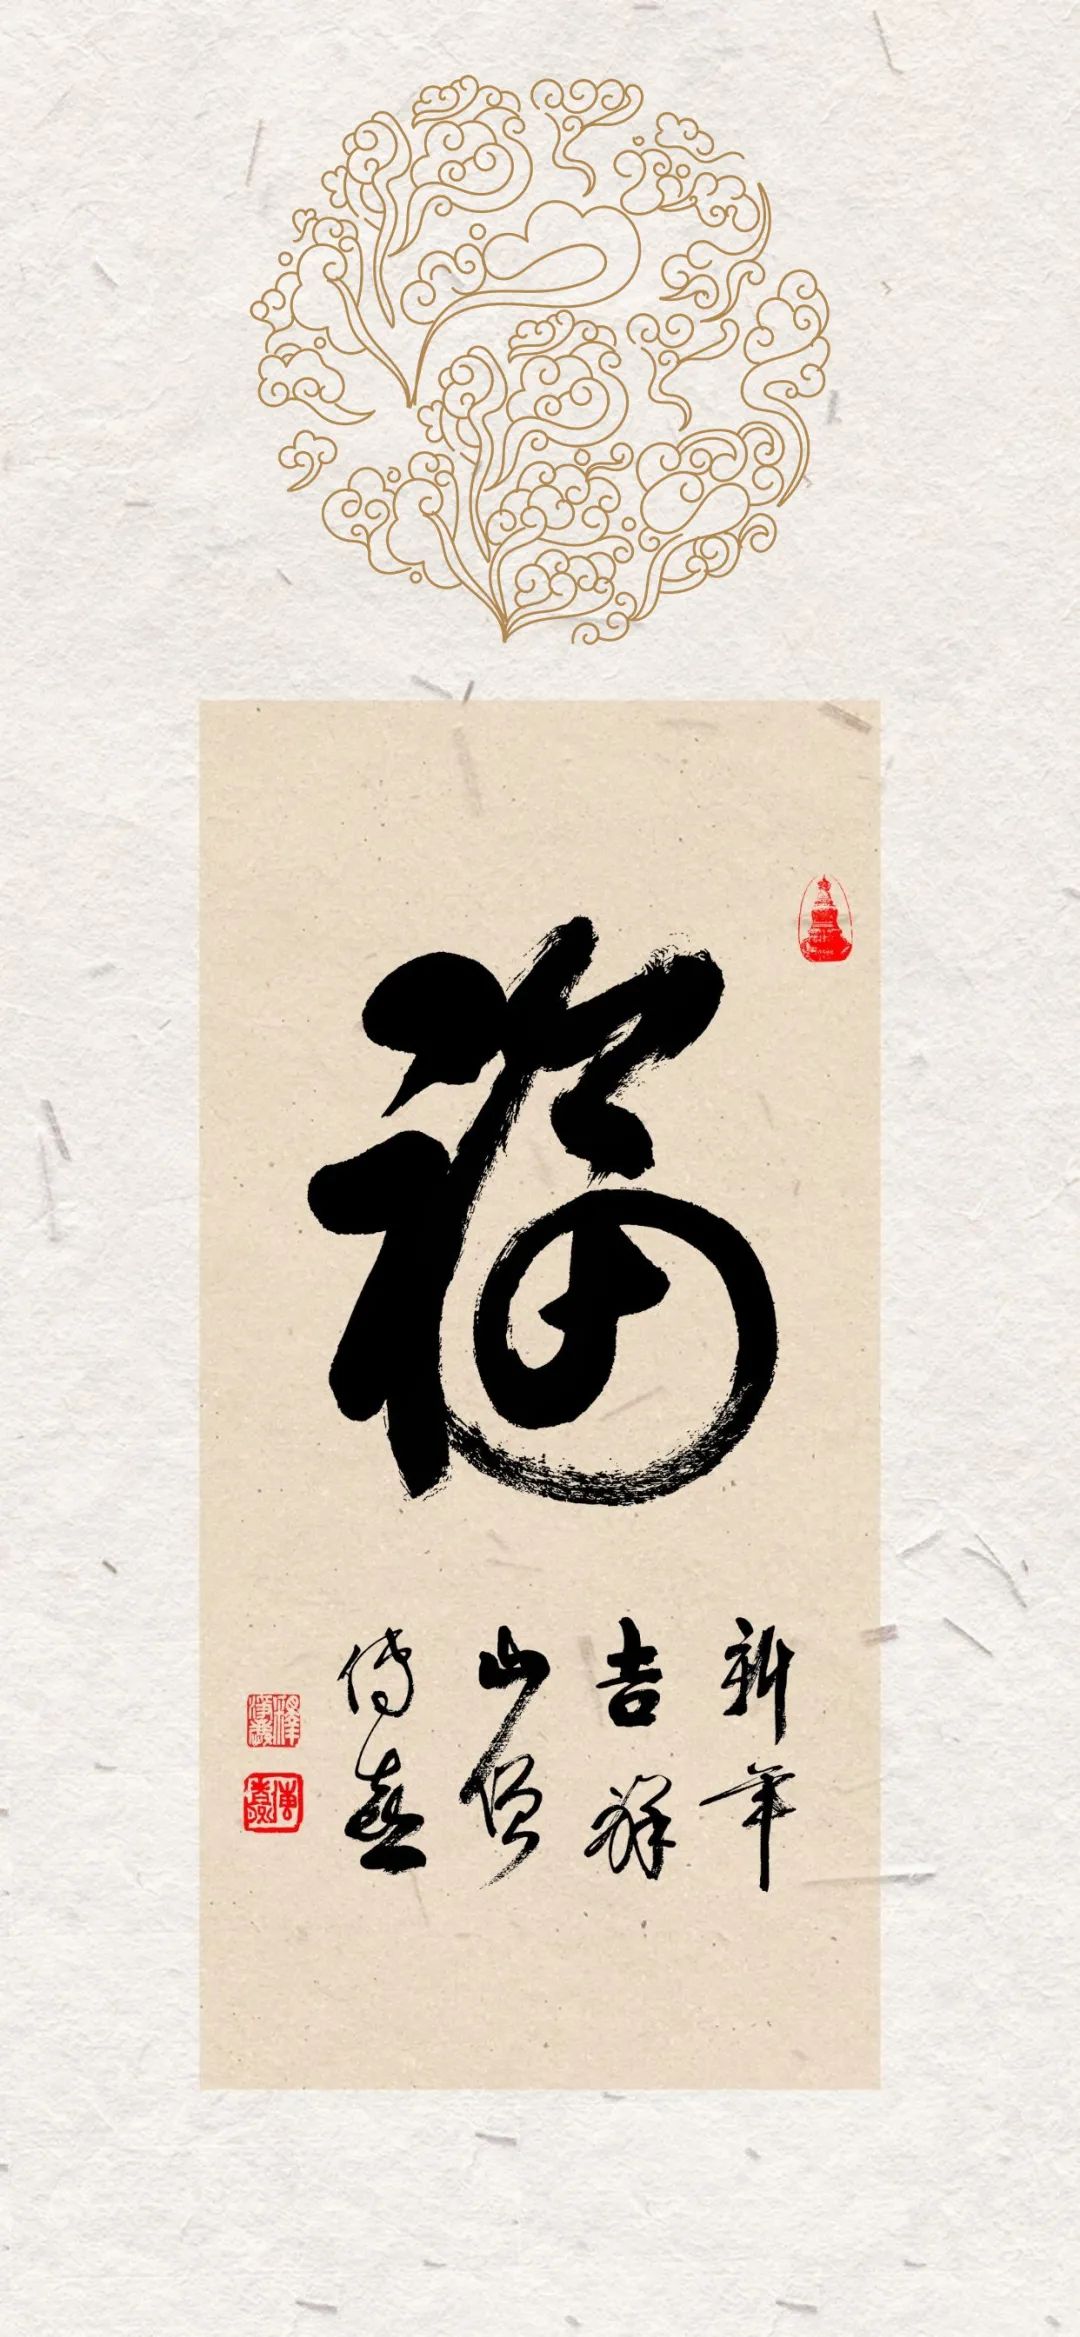 福
新年
吉祥
山僧
傳喜
傳喜